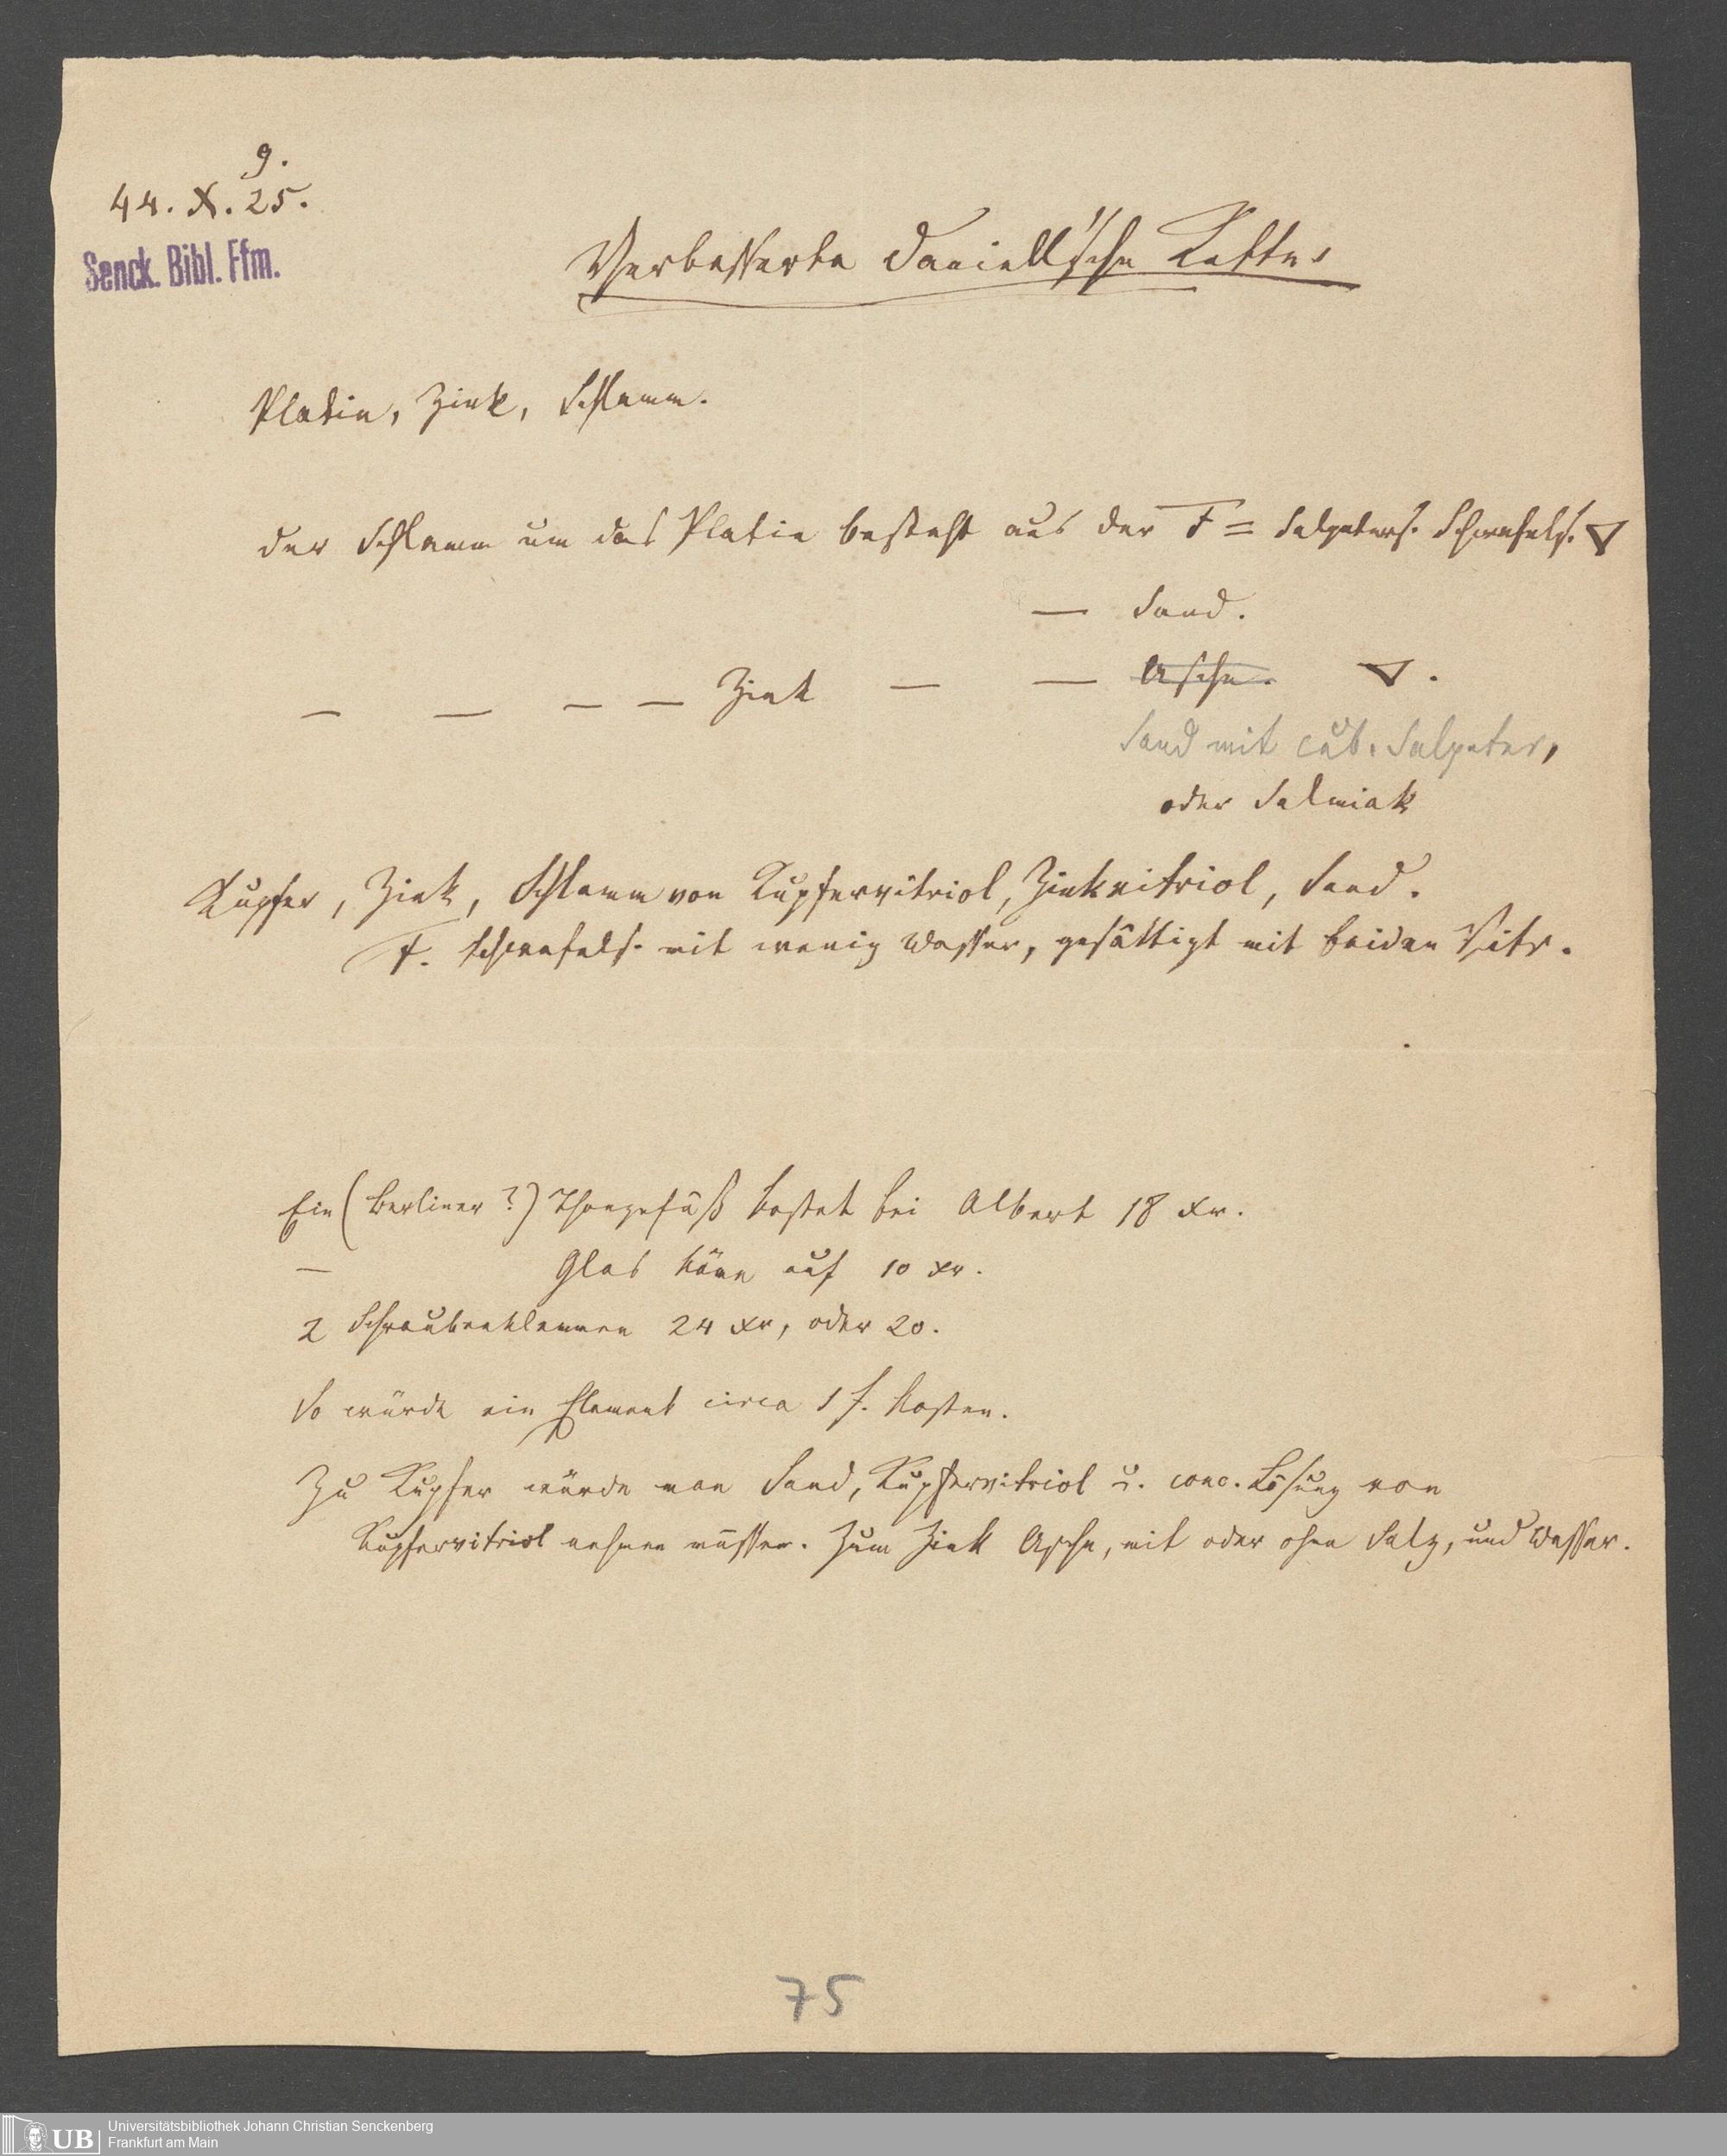 9.
44. X. 25.
Senck. Bibl. Ffm.
Verbesserte Daniell'sche Kette.
Platin, Zink, Schlamm.
der Schlamm um das Platin besteht aus der F = Salpeters. Schwefels. ▽
— Sand.
— — — — Zink — — Asche. ▽.
Sand mit cub. Salpeter,
oder Salmiak
Kupfer, Zink, Schlamm von Kupfervitriol, Zinkvitriol, Sand.
F. Schwefels. mit wenig Wasser, gesättigt mit beiden Vitr.
Ein (Berliner?) Thongefäß kostet bei Albert 18 xr.
— Glas käme auf 10 xr.
2 Schraubenklemmen 24 xr, oder 20.
So würde ein Element circa 1 f. kosten.
Zu Kupfer würde man Sand, Kupfervitriol u. conc. Lösung von
Kupfervitriol nehmen müssen. Zum Zink Asche, mit oder ohne Salz, und Wasser.
75
UB Universitätsbibliothek Johann Christian Senckenberg
Frankfurt am Main